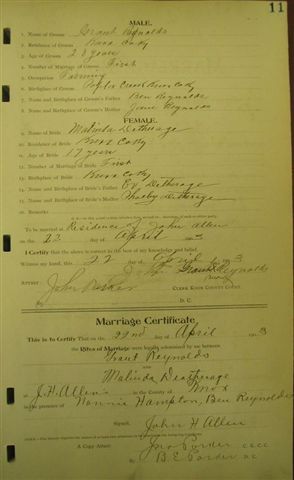 11
MALE.
1. Name of Groom Grant Reynolds
2. Residence of Groom Knox Co Ky
3. Age of Groom 23 years
4. Number of Marriage of Groom First
5. Occupation Farming
6. Birthplace of Groom Poplar Creek Knox Co Ky
7. Name and Birthplace of Groom's Father Ben Reynolds
8. Name and Birthplace of Groom's Mother Jane Reynolds
FEMALE.
9. Name of Bride Malinda Detherage
10. Residence of Bride Knox Co Ky
11. Age of Bride 17 years
12. Number of Marriage of Bride First
13. Birthplace of Bride Knox Co Ky
14. Name and Birthplace of Bride's Father Detherage
15. Name and Birthplace of Bride's Mother Detherage
16. Remarks
To be married at Residence of John Allen
on the 22 day of April 3
I Certify that the above is correct to the best of my knowledge and belief.
Witness my hand, this 22 day of April 3
Grant Reynolds
ATTEST
CLERK KNOX COUNTY COURT.
John Parker
D. C.
Marriage Certificate
This is to Certify That on the 22nd day of April 3
the Rites of Marriage were legally solemnized by me between
Grant Reynolds
AND
Malinda Deatherage
at J. H. Allen's in the County of Knox
in the presence of Nannie Hampton, Ben Reynolds
Signed, John H Allen
A Copy Attest: